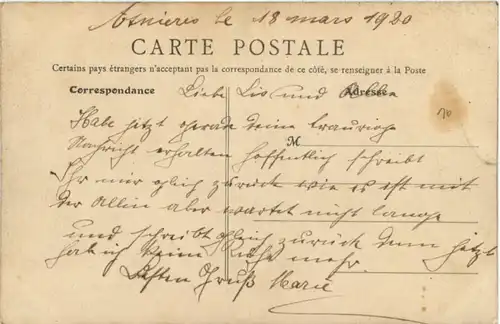 Asnieres le 18 mars 1920
CARTE POSTALE
Certains pays étrangers n'acceptant pas la correspondance de ce côté, se renseigner à la Poste
Correspondance
Adresse
Liebe Lis und
M
Habe jetzt gerade deine traurige
Nachricht erhalten hoffentlich schreibt
Ihr mir gleich zurück wie es ist mit
der Allin aber wartet nicht lange
und schreibt gleich zurück denn jetzt
hab ich keine Ruhe mehr.
Besten Gruß Marie